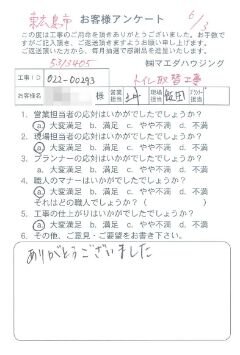 東広島市 お客様アンケート 6/3
この度は工事のご用命を頂きありがとうございました。お手数で
すがご記入頂き、ご返送頂きますようお願い申し上げます。
ご返送頂いた方から、毎月抽選で感謝品を進呈いたします。
531405 ㈱マエダハウジング
工事ID 022-00293 トイレ取替工事
お客様名 様 営業担当 現場担当 飯田
1. 営業担当者の応対はいかがでしたでしょうか?
a. 大変満足 b. 満足 c. やや不満 d. 不満
2. 現場担当者の応対はいかがでしたでしょうか?
a. 大変満足 b. 満足 c. やや不満 d. 不満
3. プランナーの応対はいかがでしたでしょうか?
a. 大変満足 b. 満足 c. やや不満 d. 不満
4. 職人のマナーはいかがでしたでしょうか?
a. 大変満足 b. 満足 c. やや不満 d. 不満
それはどの職人でしょうか? ( )
5. 工事の仕上がりはいかがでしたでしょうか?
a. 大変満足 b. 満足 c. やや不満 d. 不満
6. その他、ご意見・ご要望をお書き下さい。
ありがとうございました